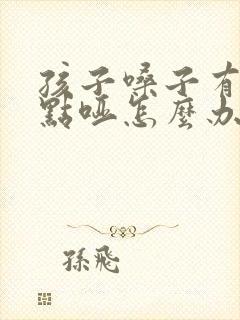 孩子嗓子有
點啞怎麼办
孫飛